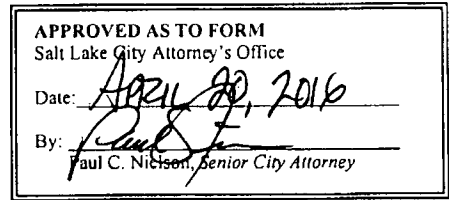 APPROVED AS TO FORM
Salt Lake City Attorney's Office
Date: APRIL 20, 2016
By:
Paul C. Nielson, Senior City Attorney